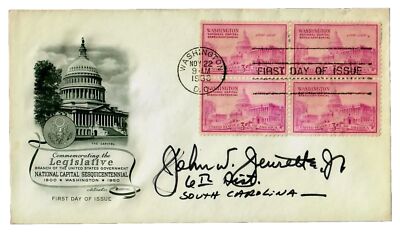 THE CAPITOL
Commemorating the
Legislative
BRANCH OF THE UNITED STATES GOVERNMENT
NATIONAL CAPITAL SESQUICENTENNIAL
1800 ★ WASHINGTON ★ 1950
FIRST DAY OF ISSUE
WASHINGTON
NATIONAL CAPITAL
SESQUICENTENNIAL
WASHINGTON
NATIONAL CAPITAL
SESQUICENTENNIAL
WASHINGTON
NOV 22
9-AM
1950
D.C.
FIRST DAY OF ISSUE
WASHINGTON
3¢
WASHINGTON
3¢
John W. Jenrette, Jr
6th Dist.
SOUTH CAROLINA